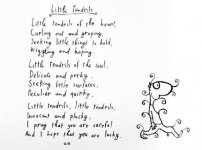 Little Tendrils
Little tendrils of the heart,
Curling out and groping,
Seeking little things to hold,
Wiggling and hoping.
Little tendrils of the soul,
Delicate and perky,
Seeking little surfaces,
Peculiar and quirky.
Little tendrils, little tendrils,
Innocent and plucky,
I pray that you are careful
And I hope that you are lucky.